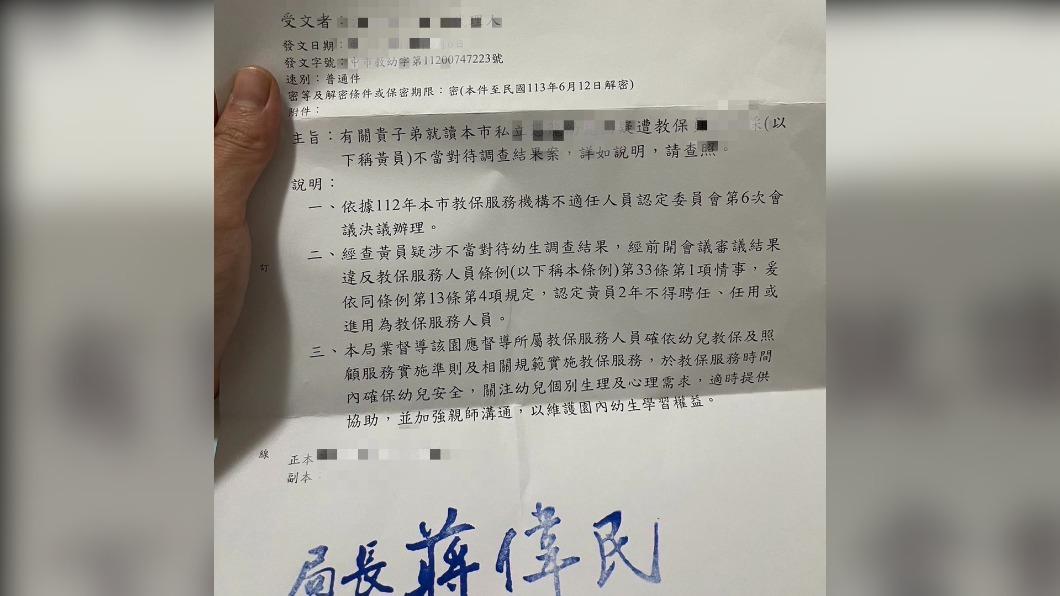 受文者：
發文日期：
發文字號：中市教幼字第11200747223號
速別：普通件
密等及解密條件或保密期限：密(本件至民國113年6月12日解密)
附件：
主旨：有關貴子弟就讀本市私立 遭教保 (以
下稱黃員)不當對待調查結果案，詳如說明，請查照。
說明：
一、依據112年本市教保服務機構不適任人員認定委員會第6次會
議決議辦理。
二、經查黃員疑涉不當對待幼生調查結果，經前開會議審議結果
違反教保服務人員條例(以下稱本條例)第33條第1項情事，爰
依同條例第13條第4項規定，認定黃員2年不得聘任、任用或
進用為教保服務人員。
三、本局業督導該園應督導所屬教保服務人員確依幼兒教保及照
顧服務實施準則及相關規範實施教保服務，於教保服務時間
內確保幼兒安全，關注幼兒個別生理及心理需求，適時提供
協助，並加強親師溝通，以維護園內幼生學習權益。
訂
線
正本
副本
局長蔣偉民